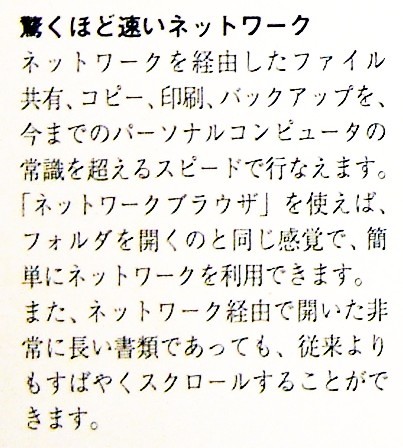 驚くほど速いネットワーク
ネットワークを経由したファイル
共有、コピー、印刷、バックアップを、
今までのパーソナルコンピュータの
常識を超えるスピードで行なえます。
「ネットワークブラウザ」を使えば、
フォルダを開くのと同じ感覚で、簡
単にネットワークを利用できます。
また、ネットワーク経由で開いた非
常に長い書類であっても、従来より
もすばやくスクロールすることがで
きます。